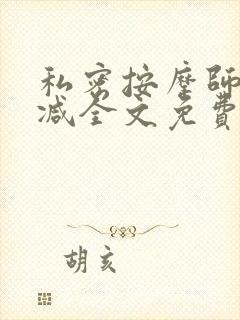 私密按摩師
减全文免費
胡亥